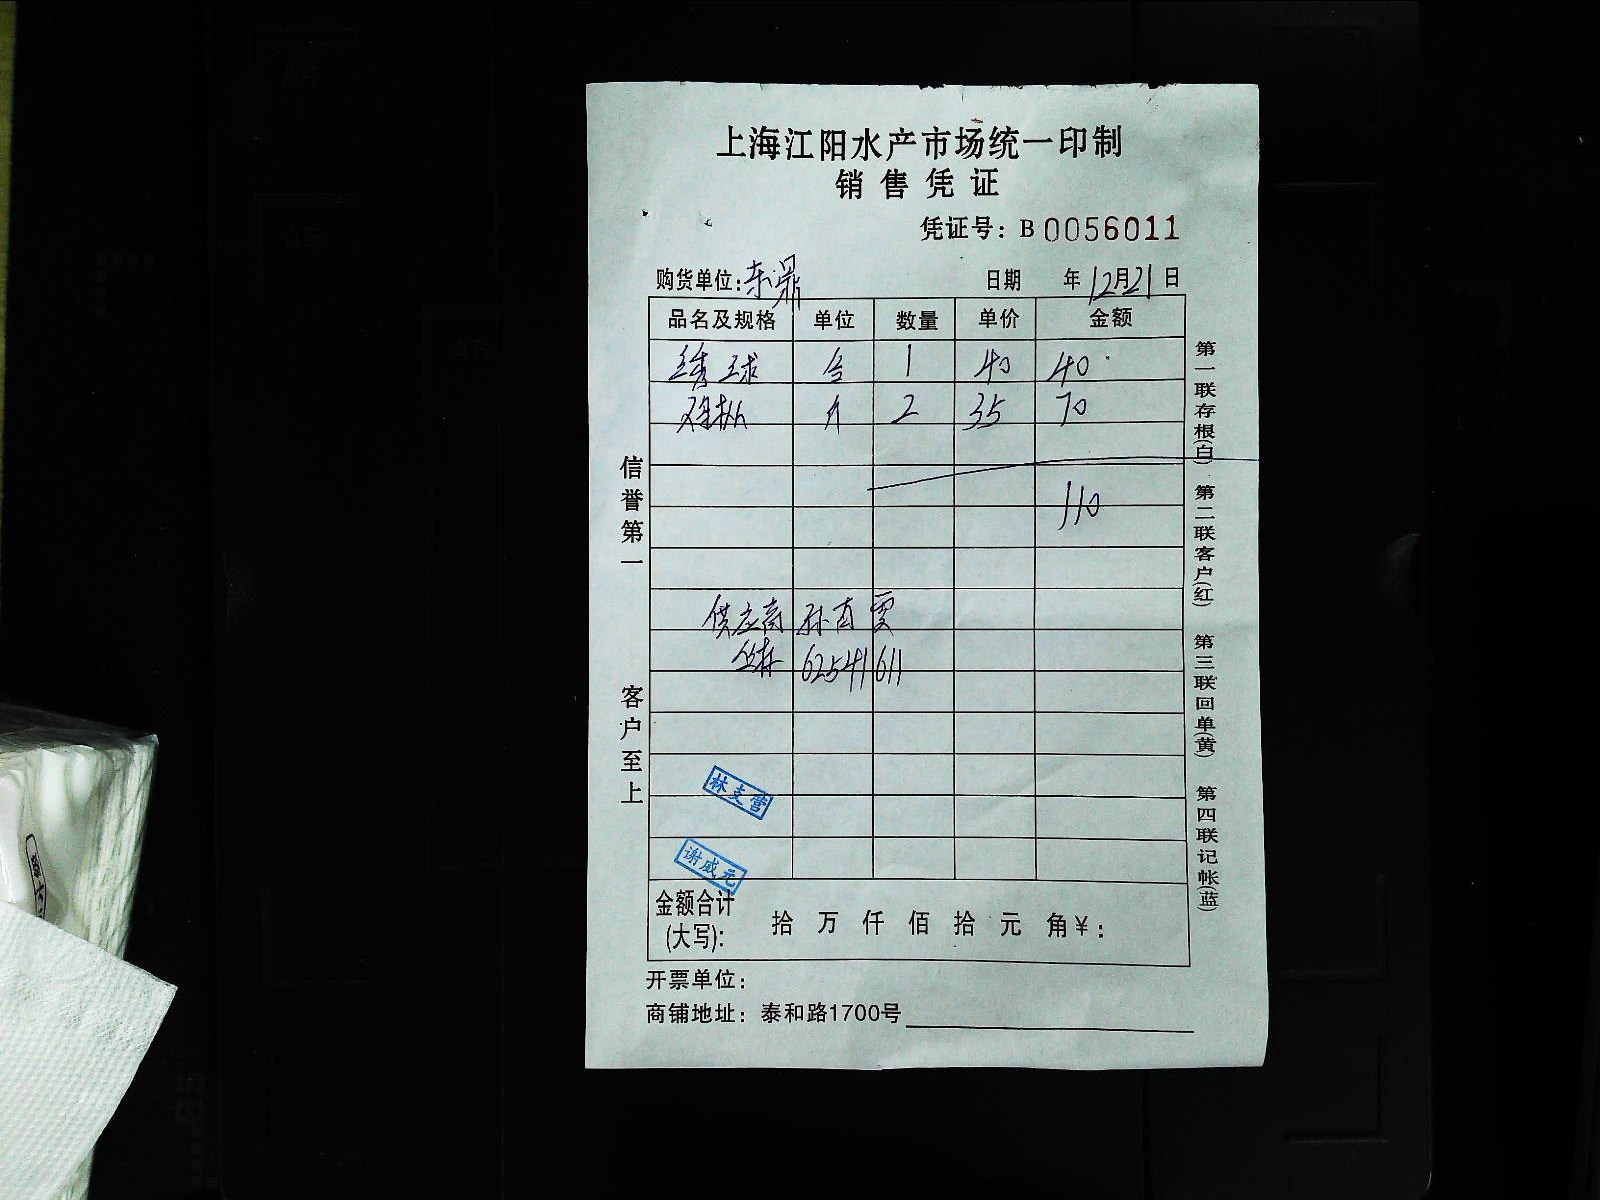 上海江阳水产市场统一印制
销售凭证
凭证号：B 0056011
购货单位：东鼎 日期 年12月21日
品名及规格 单位 数量 单价 金额
绣球 盒 1 40 40
斤 2 35 70
110
供应商 孙百雯
62541611
林支营
谢威元
金额合计(大写)： 拾 万 仟 佰 拾 元 角 ¥：
开票单位：
商铺地址：泰和路1700号
信誉第一 客户至上
第一联存根(白) 第二联客户(红) 第三联回单(黄) 第四联记帐(蓝)
A4
A5
B5